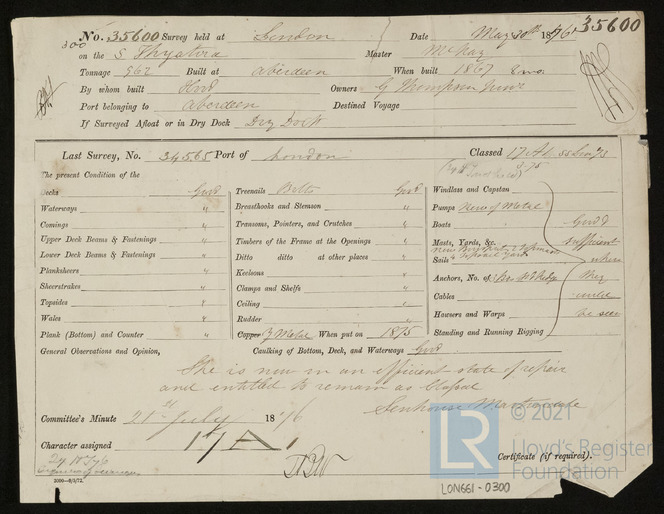 No. 35600 Survey held at London Date May 30th 1876 35600
300
on the S Thyatira Master McKay
Tonnage 962 Built at Aberdeen When built 1867 8 mo.
By whom built Hood Owners G Thompson Junr
Port belonging to Aberdeen Destined Voyage
If Surveyed Afloat or in Dry Dock Dry Dock
Last Survey, No. 34565 Port of London Classed 17 A1
The present Condition of the
Decks Good
Waterways "
Comings "
Upper Deck Beams & Fastenings "
Lower Deck Beams & Fastenings "
Planksheers "
Sheerstrakes "
Topsides "
Wales "
Plank (Bottom) and Counter "
Treenails Bolts Good
Breasthooks and Stemson "
Transoms, Pointers, and Crutches "
Timbers of the Frame at the Openings "
Ditto ditto at other places "
Keelsons "
Clamps and Shelfs "
Ceiling "
Rudder "
Copper Y Metal When put on 1875
Windlass and Capstan
Pumps New of Metal
Boats Good
Masts, Yards, &c. sufficient
Sails when
Anchors, No. of they
Cables
Hawsers and Warps be seen
Standing and Running Rigging
General Observations and Opinion, Caulking of Bottom, Deck, and Waterways Good
She is now in an efficient state of repair
and entitled to remain as Classed
Senhouse Martindale
Committee's Minute 21st July 1876
Character assigned 17 A 1
Certificate (if required).
2000—6/3/72.
LON661-0300
© 2021
LR
Lloyd's Register
Foundation